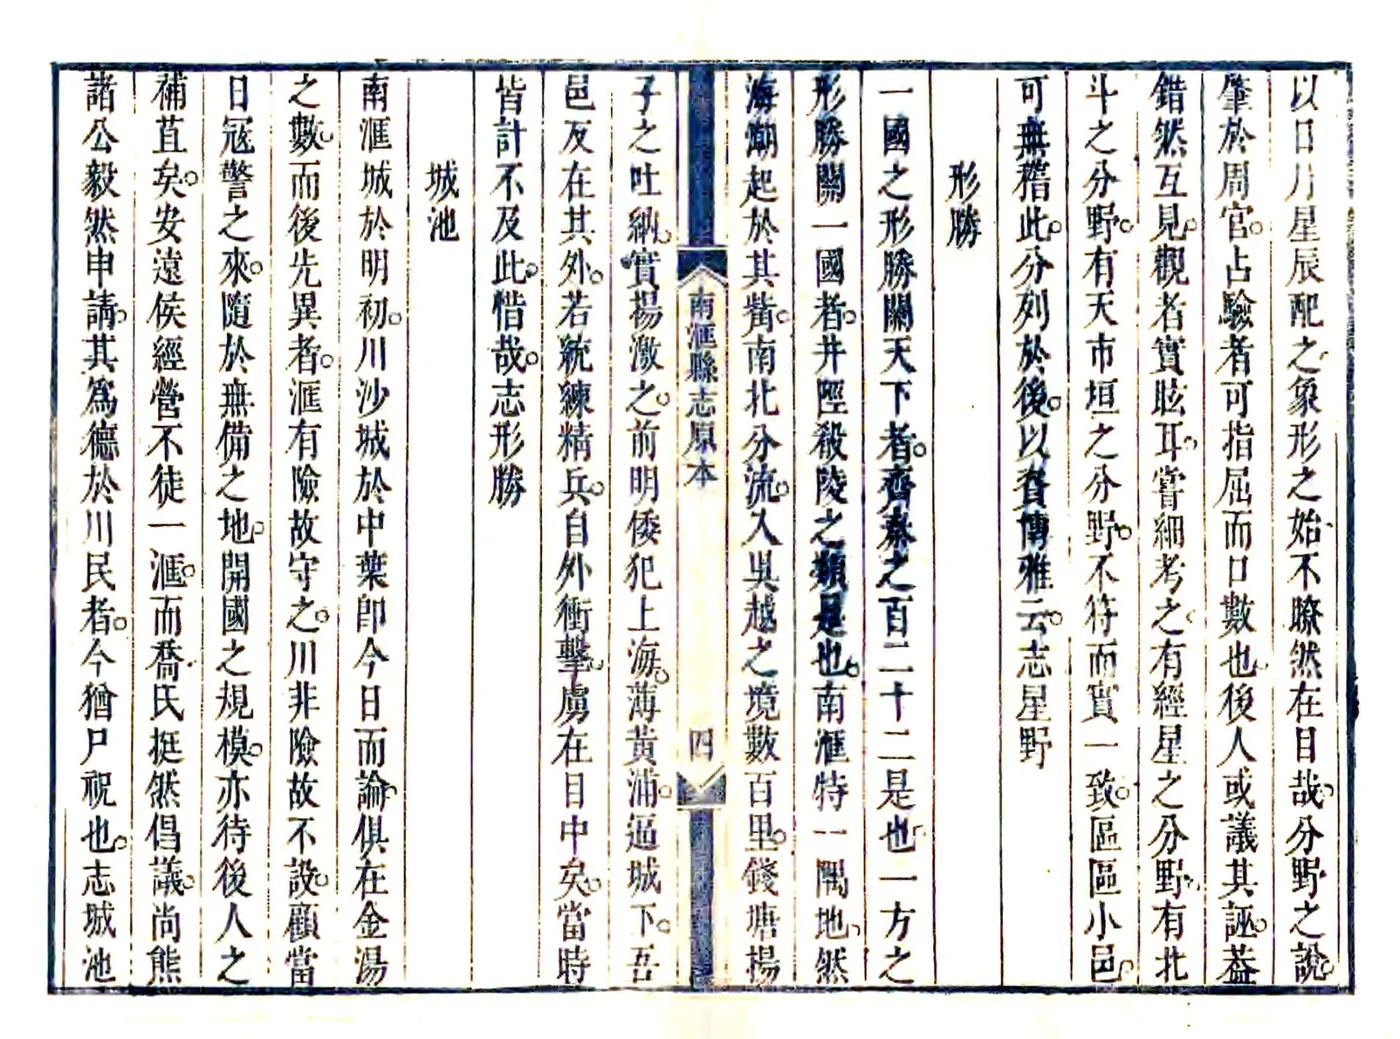 以日月星辰配之象形之始不瞭然在目哉分野之說
肇於周官占驗者可指屈而口數也後人或議其誣葢
錯然互見觀者實眩耳嘗細考之有經星之分野有北
斗之分野有天市垣之分野不符而實一致區區小邑
可無稽此分列於後以資博雅云志星野
形勝
一國之形勝關天下者齊秦之百二十二是也一方之
形勝關一國者井陘殽陵之類是也南滙特一隅地然
海潮起於其觜南北分流入吳越之境數百里錢塘揚
南滙縣志原本
四
子之吐納實揚激之前明倭犯上海薄黃浦逼城下吾
邑反在其外若統練精兵自外衝擊虜在目中矣當時
皆計不及此惜哉志形勝
城池
南滙城於明初川沙城於中葉卽今日而論俱在金湯
之數而後先異者滙有險故守之川非險故不設顧當
日寇警之來隨於無備之地開國之規模亦待後人之
補苴矣安遠侯經營不徒一滙而喬氏挺然倡議尚熊
諸公毅然申請其爲德於川民者今猶尸祝也志城池